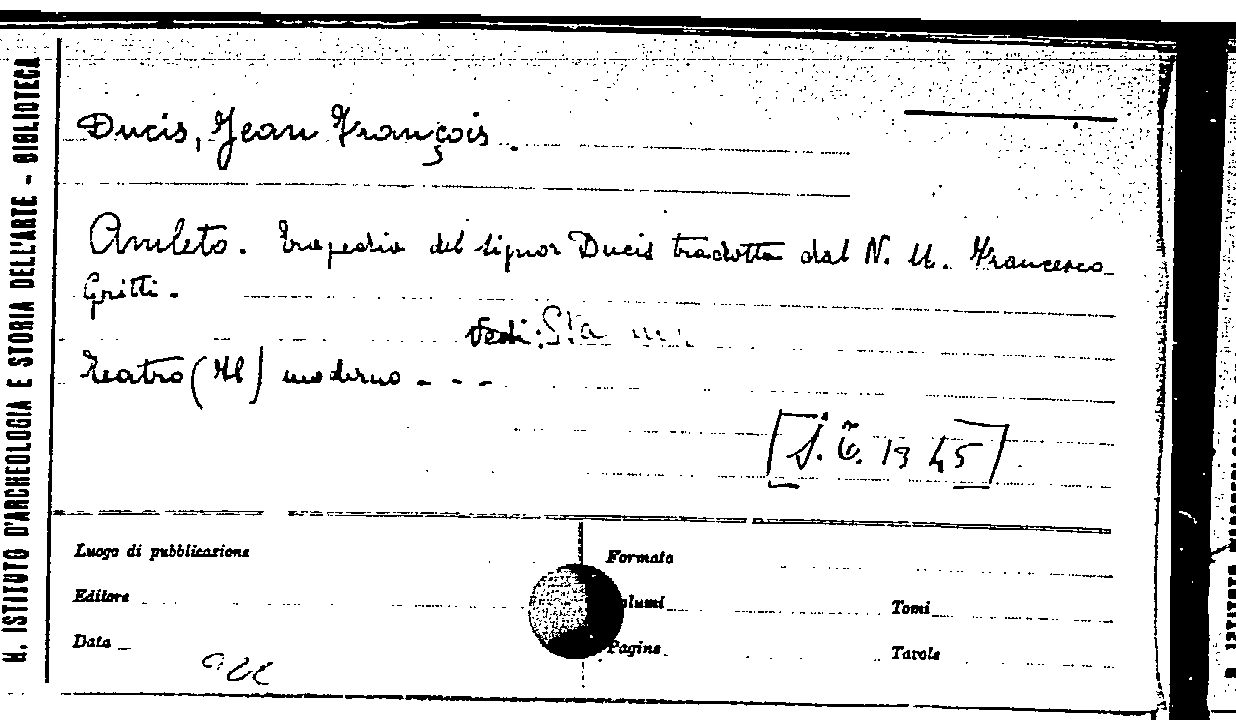 N. ISTITUTO D'ARCHEOLOGIA E STORIA DELL'ARTE - BIBLIOTECA
Ducis, Jean François.
Amleto. Tragedia del signor Ducis tradotta dal N. U. Francesco
Gritti.
Vedi:
Teatro (Il) moderno - - -
[S. T. 1945]
Luogo di pubblicazione
Formato
Editore
Volumi
Tomi
Data
Pagine
Tavole